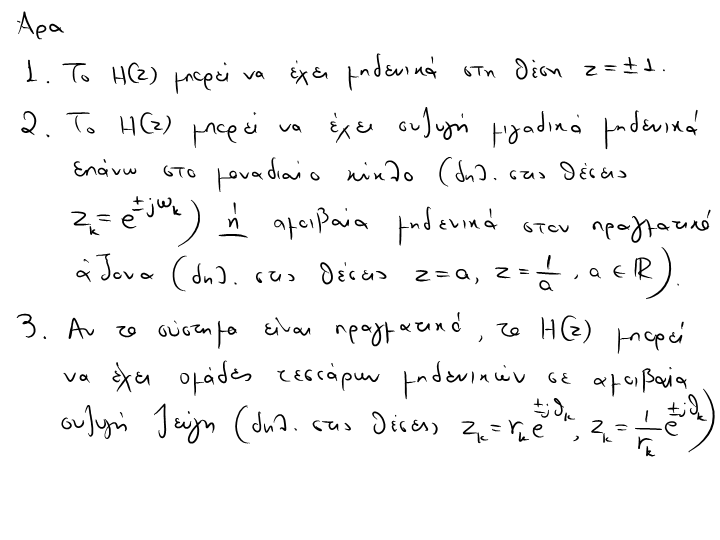 Άρα
1. Το H(z) μπορεί να έχει μηδενικά στη θέση z = ±1.
2. Το H(z) μπορεί να έχει συζυγή μιγαδικά μηδενικά
επάνω στο μοναδιαίο κύκλο (δηλ. στις θέσεις
z_k = e^{±jω_k}) ή αμοιβαία μηδενικά στον πραγματικό
άξονα (δηλ. στις θέσεις z = a, z = 1/a, a ∈ ℝ).
3. Αν το σύστημα είναι πραγματικό, το H(z) μπορεί
να έχει ομάδες τεσσάρων μηδενικών σε αμοιβαία
συζυγή ζεύγη (δηλ. στις θέσεις z_k = r_k e^{±jθ_k}, z_k = 1/r_k e^{±jθ_k})